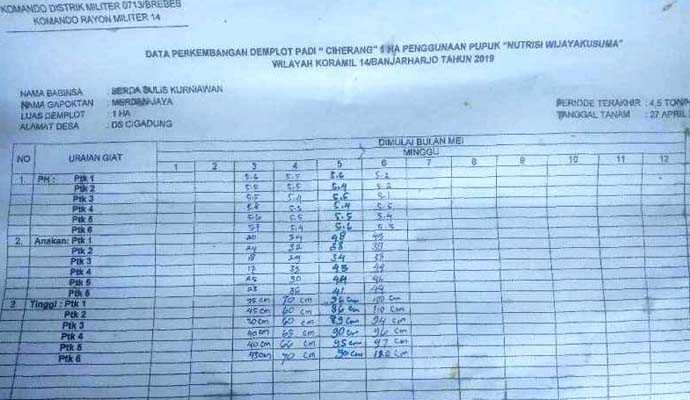 KOMANDO DISTRIK MILITER 0713/BREBES
KOMANDO RAYON MILITER 14
DATA PERKEMBANGAN DEMPLOT PADI " CIHERANG" 1 HA PENGGUNAAN PUPUK "NUTRISI WIJAYAKUSUMA"
WILAYAH KORAMIL 14/BANJARHARJO TAHUN 2019
NAMA BABINSA : SERDA SULIS KURNIAWAN
NAMA GAPOKTAN : MERDAN JAYA
LUAS DEMPLOT : 1 HA
ALAMAT DESA : DS CIGADUNG
PERIODE TERAKHIR : 4,5 TON/H
TANGGAL TANAM : 27 APRIL
NO URAIAN GIAT DIMULAI BULAN MEI
MINGGU
1 2 3 4 5 6 7 8 9 10 11 12
1. PH : Ptk 1 5.6 5.5 5.6 5.2
Ptk 2 5.5 5.5 5.4 5.2
Ptk 3 5.5 5.4 5.5 5.1
Ptk 4 5.8 5.4 5.5
Ptk 5 5.6 5.5 5.5 5.4
Ptk 6 5.4 5.6 5.5
2. Anakan: Ptk 1 20 34 48
Ptk 2 24 32 38
Ptk 3 18 29 34
Ptk 4 17 35 45
Ptk 5 30 44
Ptk 6 41 44
3 Tinggi : Ptk 1 35 cm 70 cm 96 cm 100 cm
Ptk 2 45 cm 60 cm 86 cm 110 cm
Ptk 3 30 cm 60 cm 83 cm 94 cm
Ptk 4 40 cm 65 cm 90 cm 96 cm
Ptk 5 40 cm 66 cm 95 cm 97 cm
Ptk 6 43 cm 70 cm 90 cm cm